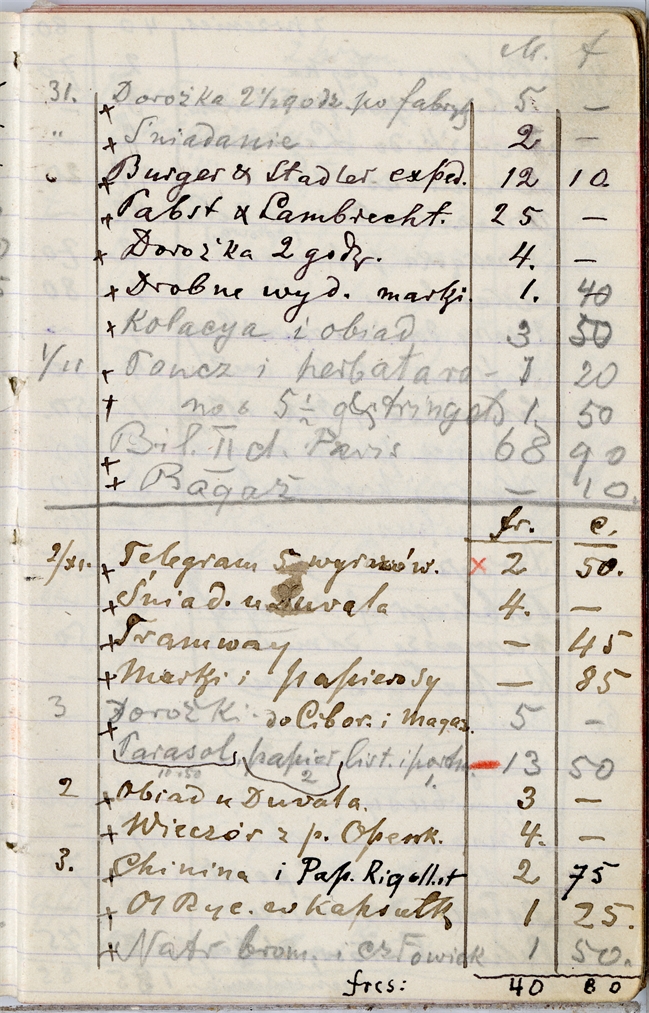 M. f
31. + Dorożka 2½ godz. po fabryk 5. —
" + Śniadanie 2 —
+ Burger & Stadler exped. 12 10.
+ Pabst & Lambrecht. 25 —
+ Dorożka 2 godz. 4. —
+ Drobne wyd. marki. 1. 40
+ Kolacya i obiad 3 50
1/11 + Poncz i herbata ra- 1 20
+ no 1 50
+ Bil. II cl. Paris 68 90
+ Bagaż — 10.
fr. c.
2/XI. + Telegram 5 wyrazów. × 2 50.
+ Śniad. u Duvala 4. —
+ Tramway — 45
+ Marki i papierosy — 85
3 + Dorożki do Cibor. i magaz. 5 —
Parasol, papier list. i portm. — 13 50
10.50 2 1.
2 + Obiad u Duvala. 3 —
+ Wieczór z p. Openk. 4. —
3. + Chinina i Pap. Rigollot 2 75
+ Ol Ryc. w kapsułk 1 25.
+ Natr brom. i człowiek 1 50.
frcs: 40 80